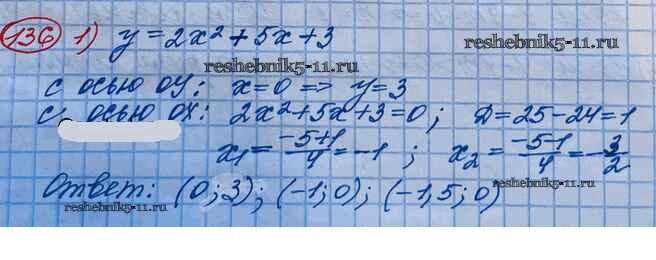 136 1) y = 2x² + 5x + 3
reshebnik5-11.ru
reshebnik5-11.ru
с осью OY: x=0 => y=3
с осью OX: 2x²+5x+3=0; D=25-24=1
x₁ = (-5+1)/4 = -1; x₂ = (-5-1)/4 = -3/2
Ответ: (0; 3); (-1; 0); (-1,5; 0)
reshebnik5-11.ru
reshebnik5-11.ru